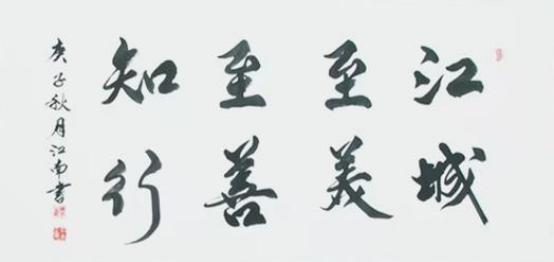 江城
至美
至善
知行
庚子秋月江南書